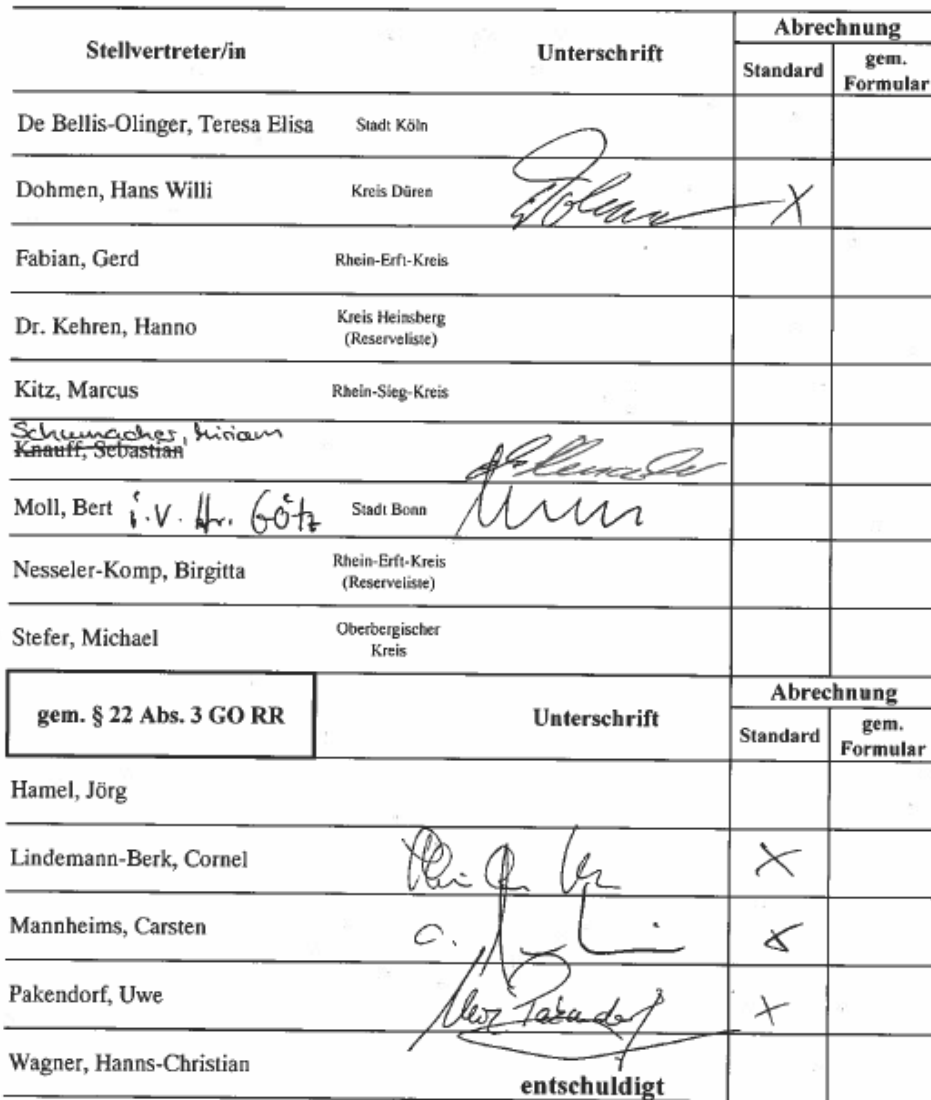 Abrechnung
Stellvertreter/in Unterschrift Standard gem. Formular
De Bellis-Olinger, Teresa Elisa Stadt Köln
Dohmen, Hans Willi Kreis Düren X
Fabian, Gerd Rhein-Erft-Kreis
Dr. Kehren, Hanno Kreis Heinsberg (Reserveliste)
Kitz, Marcus Rhein-Sieg-Kreis
Schumacher, Miriam
Knauff, Sebastian
Moll, Bert i.V. Hr. Götz Stadt Bonn
Nesseler-Komp, Birgitta Rhein-Erft-Kreis (Reserveliste)
Stefer, Michael Oberbergischer Kreis
Abrechnung
gem. § 22 Abs. 3 GO RR Unterschrift Standard gem. Formular
Hamel, Jörg
Lindemann-Berk, Cornel X
Mannheims, Carsten C. X
Pakendorf, Uwe Uwe Pakendorf X
Wagner, Hanns-Christian entschuldigt